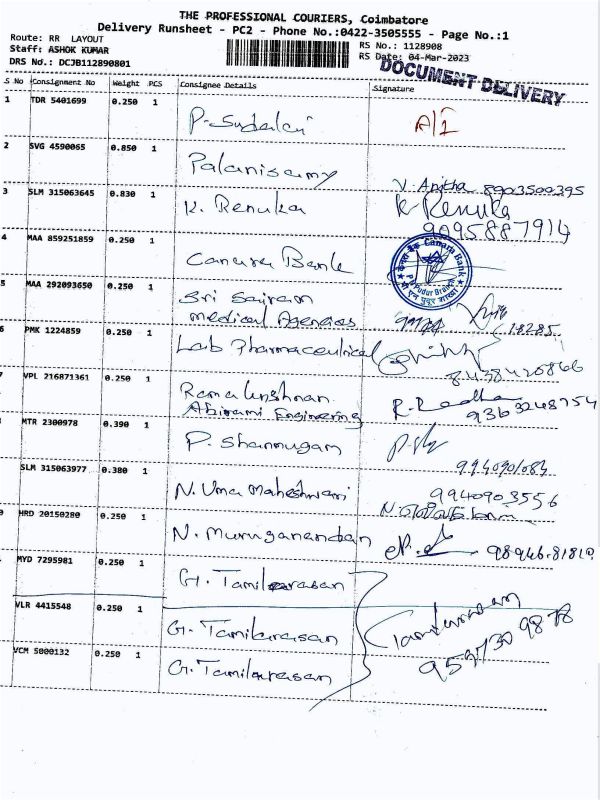 THE PROFESSIONAL COURIERS, Coimbatore
Delivery Runsheet - PC2 - Phone No.:0422-3505555 - Page No.:1
Route: RR LAYOUT
RS No.: 1128908
Staff: ASHOK KUMAR
RS Date: 04-Mar-2023
DRS No.: DCJB112890801
DOCUMENT DELIVERY
S No Consignment No Weight PCS Consignee Details Signature
1 TDR 5401699 0.250 1
A/I
2 SVG 4590065 0.850 1 Palanisamy V. Anitha 8903500395
3 SLM 315063645 0.830 1 K. Renuka K Renuka
9095887914
4 MAA 859251859 0.250 1 Canara Bank
Canara Bank
5 MAA 292093650 0.250 1 Sri Sairam
Medical Agencies
18285
6 PMK 1224859 0.250 1 Lab Pharmaceutical
8438420866
VPL 216871361 0.250 1 Ramakrishnan R. Radha
Abirami Engineering 9363248754
MTR 2300978 0.390 1 P. Shanmugam
9940901084
SLM 315063977 0.380 1 N. Uma Maheshwari 9940903556
HRD 20150280 0.250 1 N. Muruganandan 98946.81810
MYD 7295981 0.250 1 G. Tamilarasan
VLR 4415548 0.250 1 G. Tamilarasan
VCM 5000132 0.250 1 G. Tamilarasan